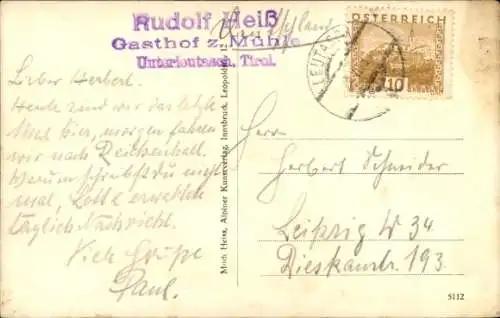 Rudolf Heiß
Gasthof z. Mühle
Unterleutasch, Tirol.
ÖSTERREICH
10
LEUTASCH
Lieber Herbert.
Heute sind wir das letzte
Mal hier, morgen fahren
wir nach Reichenhall.
Warum schreibst du nicht
mal, Lotte erwartet
täglich Nachricht.
Viele Grüße
Paul.
Mich. Heiss, Alpiner Kunstverlag, Innsbruck, Leopold
Herrn
Herbert Schneider
Leipzig W 34
Dieskaustr. 193.
5112